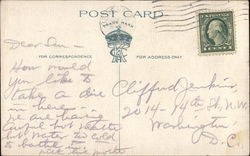 POST CARD
TRADE MARK
FOR CORRESPONDENCE
FOR ADDRESS ONLY
1 CENT 1
Dear Son —
How would
you like to
take a dive
in here —
we are having
awful hot weather
but water too cold
to bathe in
Clifford Jenkins
2014 — 14th St, N.W.
Washington
D.C.